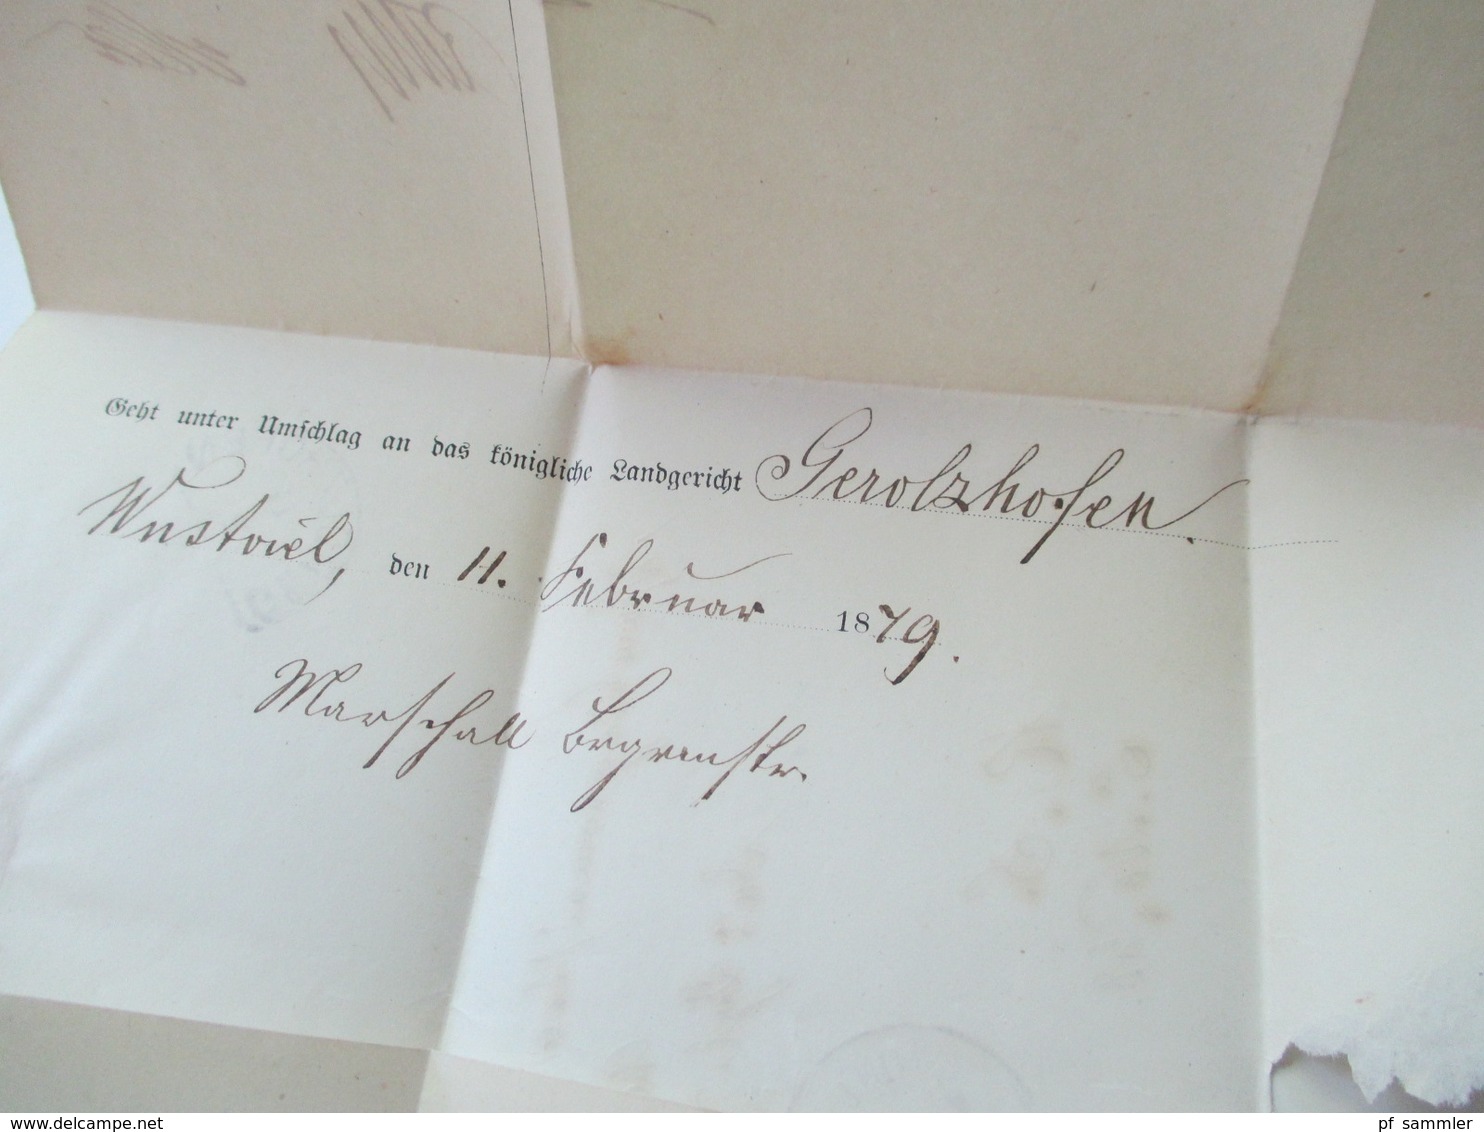 Geht unter Umschlag an das königliche Landgericht Gerolzhofen.
Wustviel, den 11. Februar 1879.
Marschall Brgrmstr.
www.delcampe.net
pf_sammler